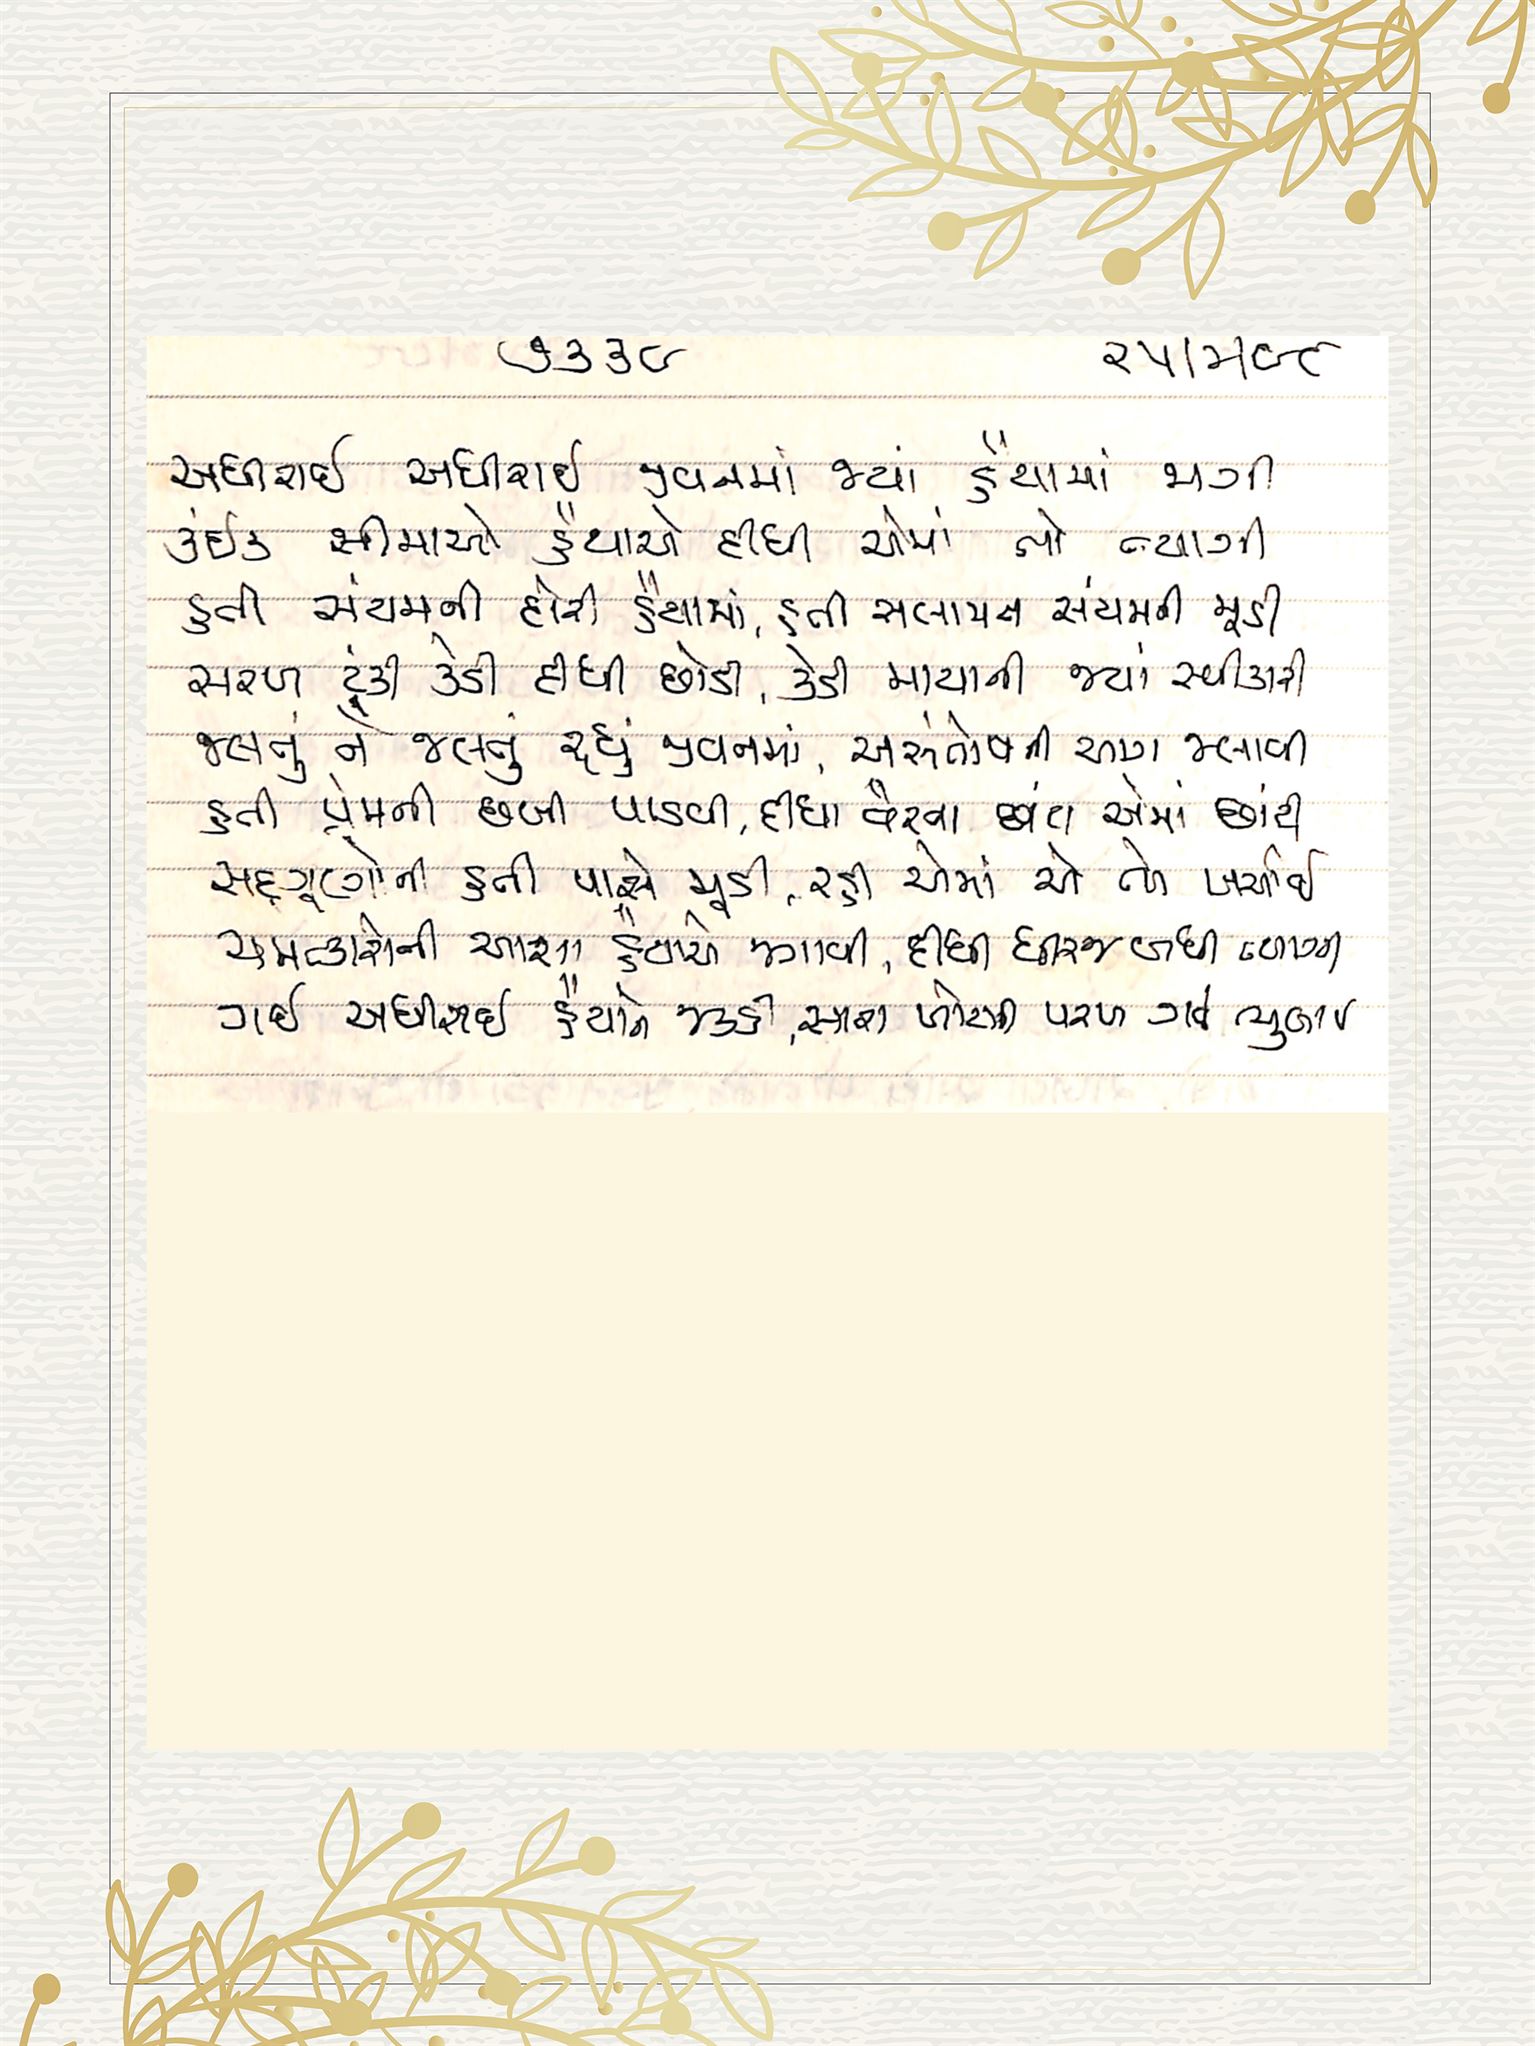 ૭૩૩૮ ૨૫/મ/૯૮
અધીરાઈ અધીરાઈ જીવનમાં જ્યાં હૈયામાં જાગી
કંઈક સીમાઓ હૈયાએ દીધી એમાં તો ત્યાગી
હતી સંયમની દોરી હૈયામાં, હતી સલામત સંયમની મૂડી
સરળ ટૂંકી કેડી દીધી છોડી, કેડી માયાની જ્યાં સ્વીકારી
જલનું ને જલનું રહ્યું જીવનમાં, અસંતોષની આગ જલાવી
હતી પ્રેમની છબી પાડવી, દીધા વૈરના છાંટા એમાં છાંટી
સદ્ગૂણોની હતી પાસે મૂડી, રહી એમાં એ તો ખર્ચાઈ
ચમત્કારોની આશા હૈયાએ જગાવી, દીધી ધીરજ બધી ત્યાગી
ગઈ અધીરાઈ હૈયાને જકડી, સારા ખોટાની પરખ ગઈ ભુલાઈ